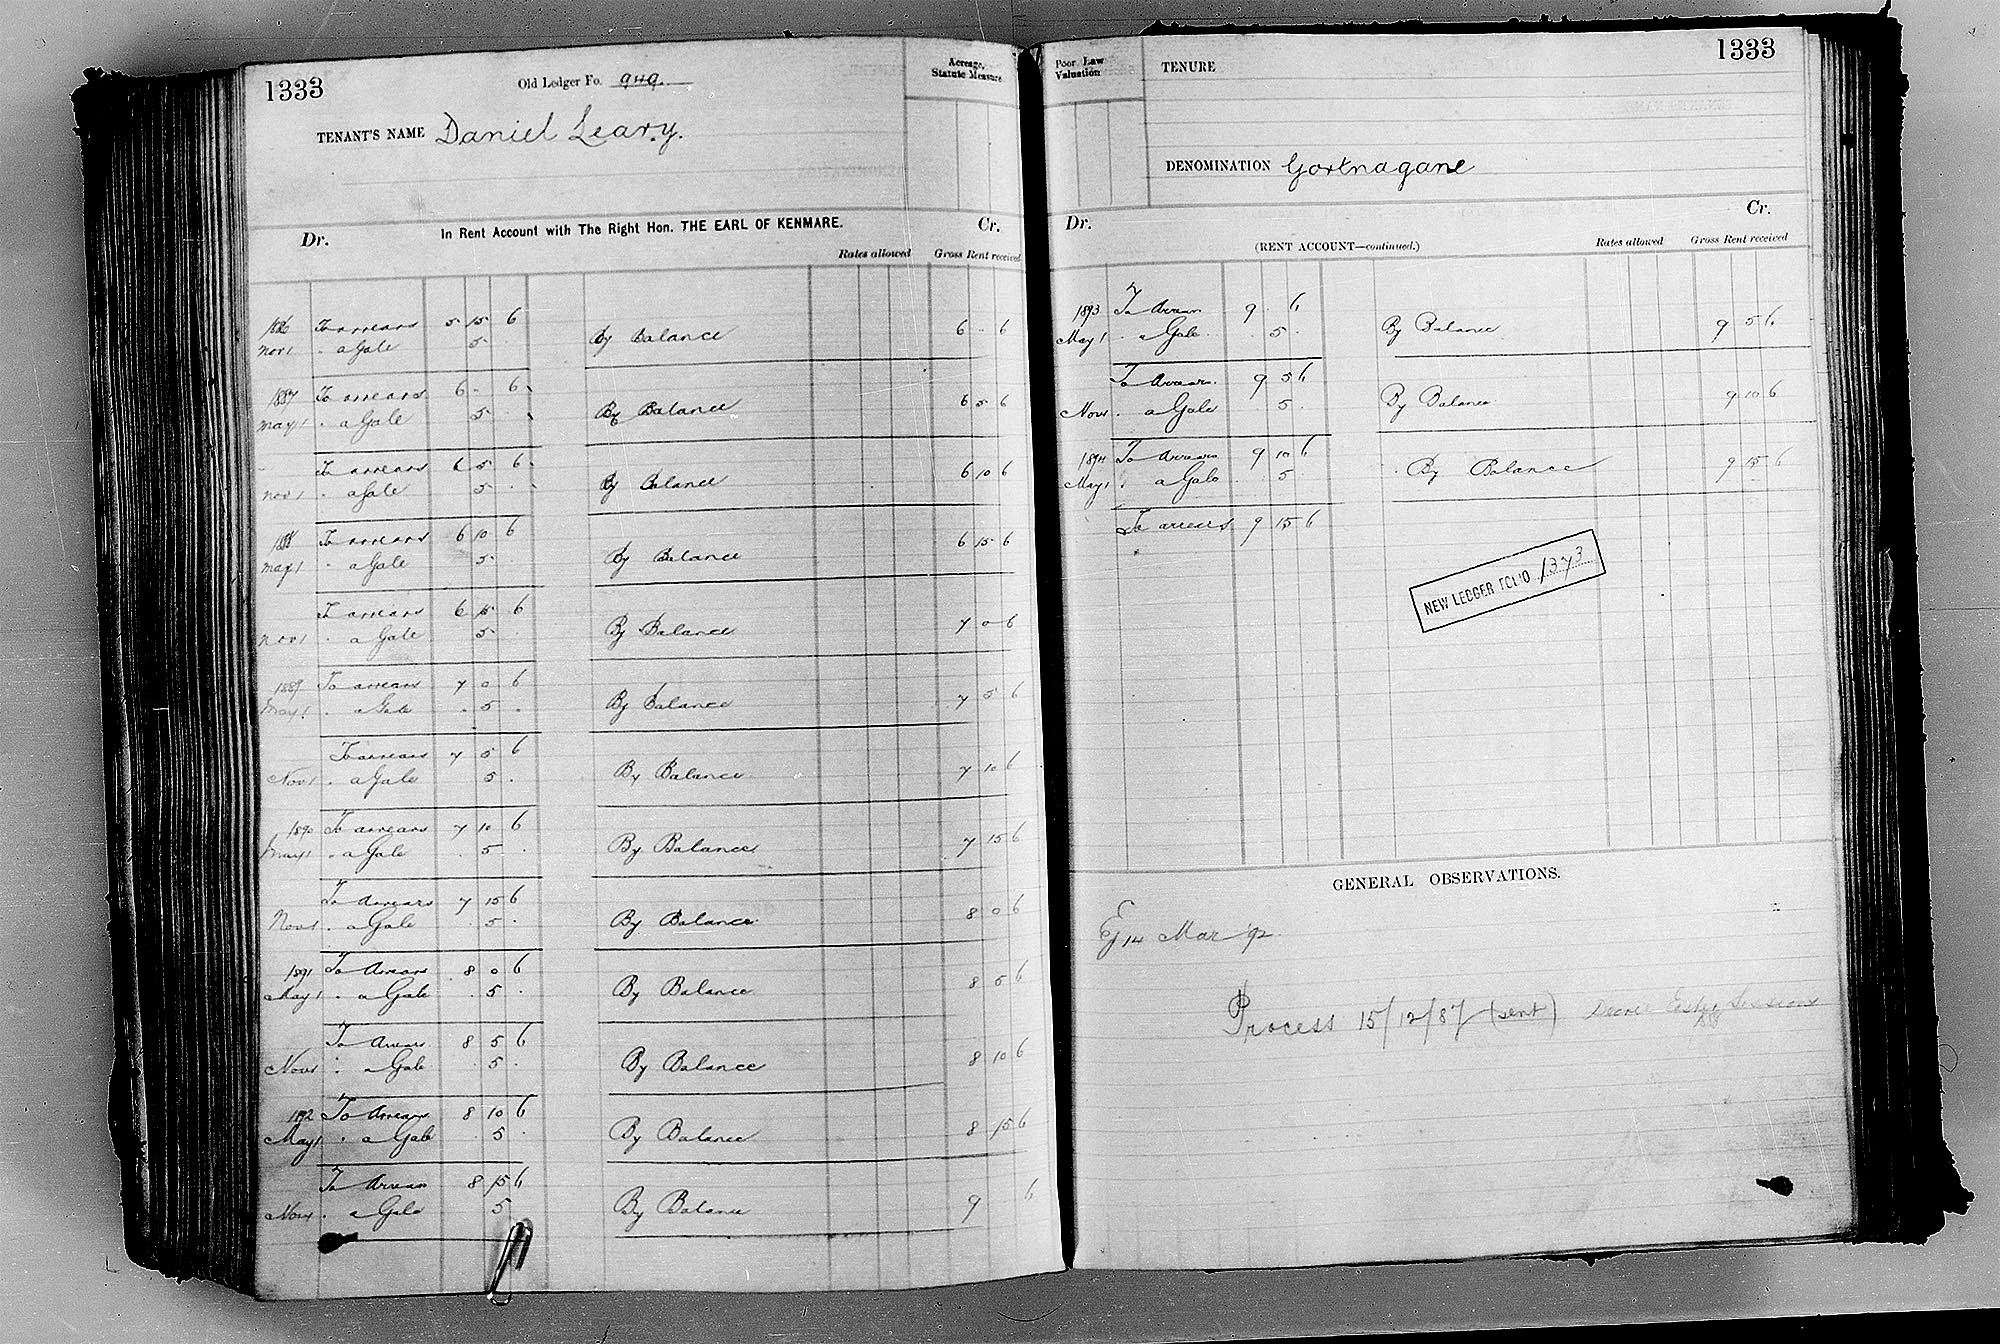 1333
Old Ledger Fo. 949
TENANT'S NAME Daniel Leary.
Acreage,
Statute Measure
In Rent Account with The Right Hon. THE EARL OF KENMARE.
Dr. Cr.
Rates allowed Gross Rent received
1886 To arrears 5 15 6
Nov 1 " a Gale 5 By Balance 6 - 6
1887 To arrears 6 - 6
May 1 " a Gale 5 By Balance 6 5 6
To arrears 6 5 6
Nov 1 " a Gale 5 By Balance 6 10 6
1888 To arrears 6 10 6
May 1 " a Gale 5 By Balance 6 15 6
To arrears 6 15 6
Nov 1 " a Gale 5 By Balance 7 0 6
1889 To arrears 7 0 6
May 1 " a Gale 5 By Balance 7 5 6
To arrears 7 5 6
Nov 1 " a Gale 5 By Balance 7 10 6
1890 To arrears 7 10 6
May 1 " a Gale 5 By Balance 7 15 6
To Arrears 7 15 6
Nov 1 " a Gale 5 By Balance 8 0 6
1891 To Arrears 8 0 6
May 1 " a Gale 5 By Balance 8 5 6
To Arrears 8 5 6
Nov 1 " a Gale 5 By Balance 8 10 6
1892 To Arrears 8 10 6
May 1 " a Gale 5 By Balance 8 15 6
To Arrears 8 15 6
Nov " a Gale 5 By Balance 9 6
1333
Poor Law
Valuation
TENURE
DENOMINATION Gortnagane
Dr. Cr.
(RENT ACCOUNT—continued.)
Rates allowed Gross Rent received
1893 To Arrears 9 6
May 1 " a Gale 5 By Balance 9 5 6
To Arrears 9 5 6
Nov 1 " a Gale 5 By Balance 9 10 6
1894 To Arrears 9 10 6
May 1 " a Gale 5 By Balance 9 15 6
To arrears 9 15 6
NEW LEDGER FOLIO 1373
GENERAL OBSERVATIONS.
Ej 14 Mar 92
Process 15/12/87 (sent) Decree Sessions